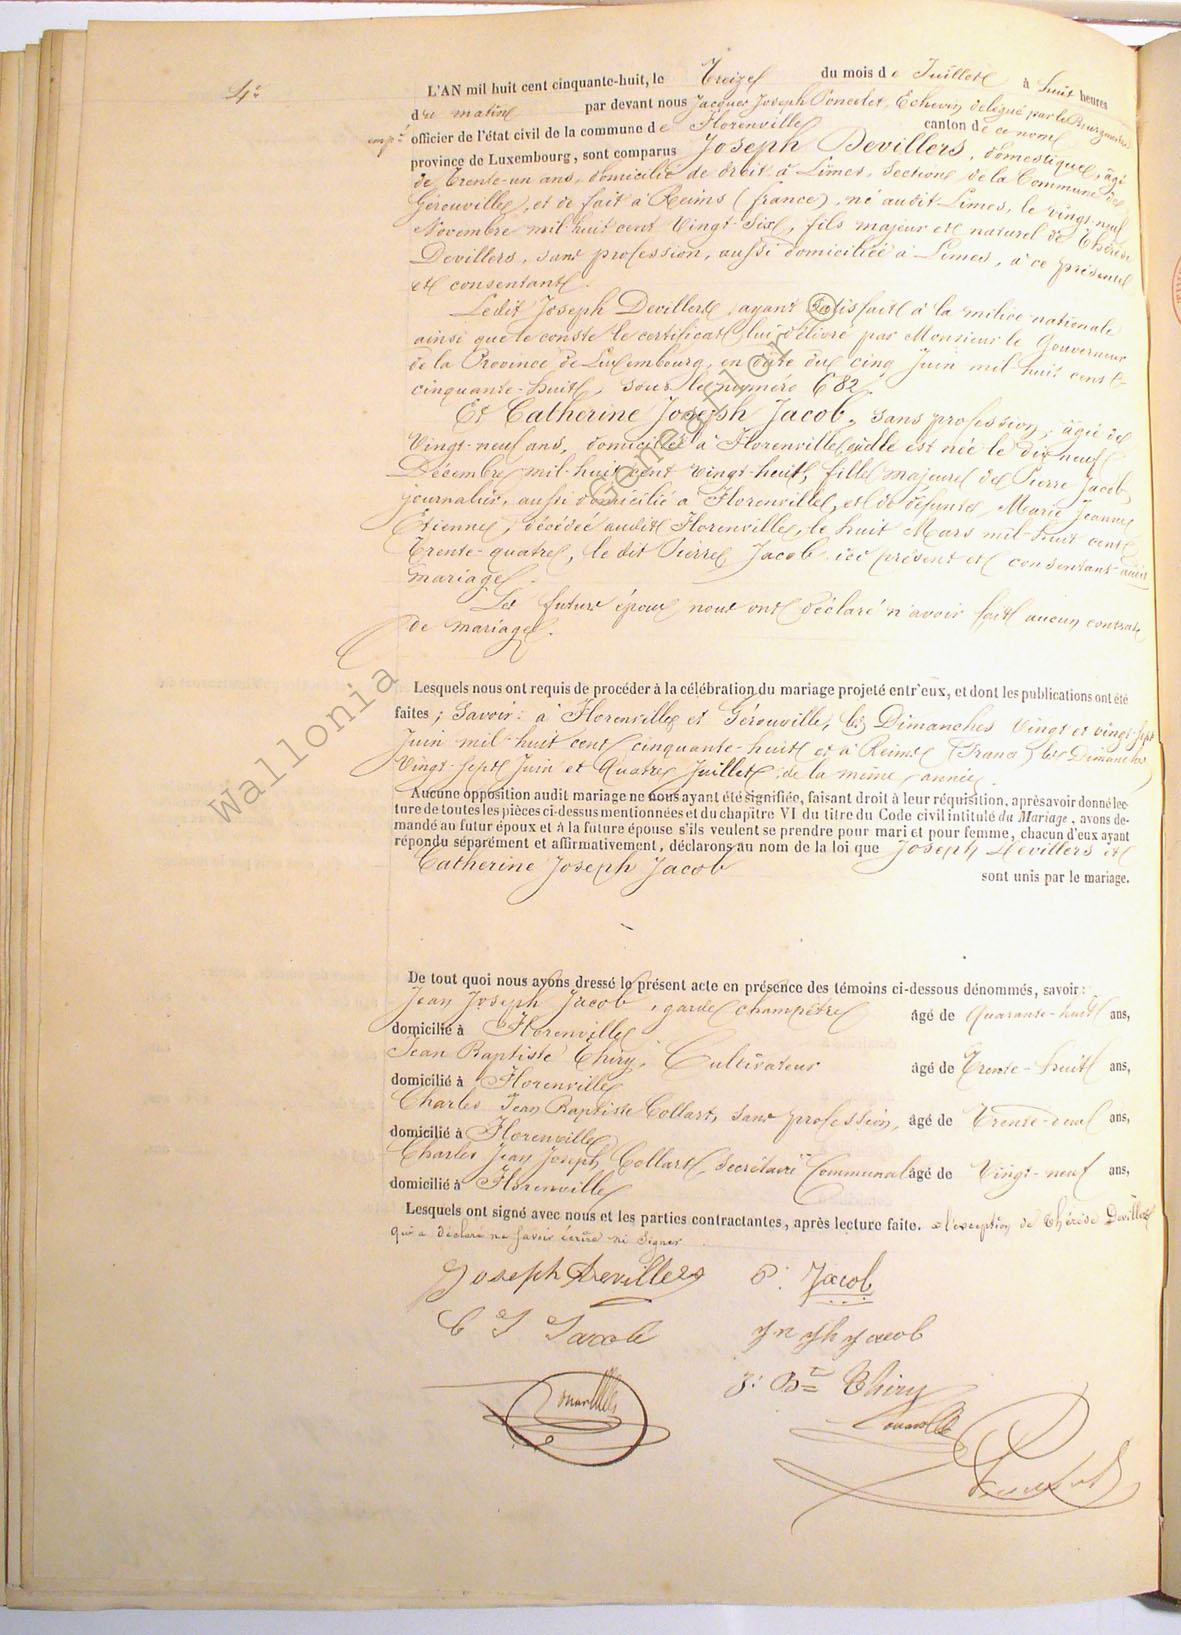 4e
L'AN mil huit cent cinquante-huit, le Treize du mois de Juillet à huit heures
du matin par devant nous Jacques Joseph Poncelet, Echevin délégué par le Bourgmestre
empé officier de l'état civil de la commune de Florenville canton de ce nom
province de Luxembourg, sont comparus Joseph Devillers, domestique, âgé
de Trente-un ans, domicilié de droit à Limes, Section de la Commune de
Gérouville, et de fait à Reims (france), né audit Limes, le vingt-neuf
Novembre mil-huit cent Vingt-Six, fils majeur et naturel de Thérèse
Devillers, sans profession, aussi domiciliée à Limes, à ce présente
et consentante.
Ledit Joseph Devillers, ayant satisfait à la milice nationale
ainsi que le conste le certificat lui délivré par Monsieur le Gouverneur
de la Province de Luxembourg, en date du cinq Juin mil-huit cent
cinquante-huit, sous le numéro 682.
Et Catherine Joseph Jacob, sans profession, âgée de
Vingt-neuf ans, domiciliée à Florenville, où elle est née le dix neuf
Décembre mil-huit cent vingt-huit, fille majeure de Pierre Jacob,
journalier, aussi domicilié à Florenville, et de défunte Marie Jeanne
Etienne, décédée audit Florenville, le huit Mars mil-huit cent
Trente-quatre, le dit Pierre Jacob ici présent et consentant audit
mariage.
Les futurs époux nous ont déclaré n'avoir fait aucun contrat
de mariage.
Lesquels nous ont requis de procéder à la célébration du mariage projeté entr'eux, et dont les publications ont été
faites ; Savoir : à Florenville et Gérouville, les Dimanches Vingt et vingt-sept
Juin mil-huit cent cinquante-huit et à Reims (France) les Dimanches
Vingt-sept Juin et Quatre Juillet de la même année.
Aucune opposition audit mariage ne nous ayant été signifiée, faisant droit à leur réquisition, après avoir donné lec-
ture de toutes les pièces ci-dessus mentionnées et du chapitre VI du titre du Code civil intitulé du Mariage, avons de-
mandé au futur époux et à la future épouse s'ils veulent se prendre pour mari et pour femme, chacun d'eux ayant
répondu séparément et affirmativement, déclarons au nom de la loi que Joseph Devillers et
Catherine Joseph Jacob sont unis par le mariage.
De tout quoi nous avons dressé le présent acte en présence des témoins ci-dessous dénommés, savoir :
Jean Joseph Jacob, garde champêtre âgé de Quarante-huit ans,
domicilié à Florenville
Jean Baptiste Thiry, Cultivateur âgé de Trente-huit ans,
domicilié à Florenville
Charles Jean Baptiste Collart, sans profession, âgé de Trente-deux ans,
domicilié à Florenville
Charles Jean Joseph Collart, secrétaire Communal âgé de Vingt-neuf ans,
domicilié à Florenville
Lesquels ont signé avec nous et les parties contractantes, après lecture faite. à l'exception de Thérèse Devillers
qui a déclaré ne savoir écrire ni signer
Joseph Devillers P. Jacob
C J Jacob Jn Jh Jacob
J: Bte Thiry
Wallonia Genealogy ©